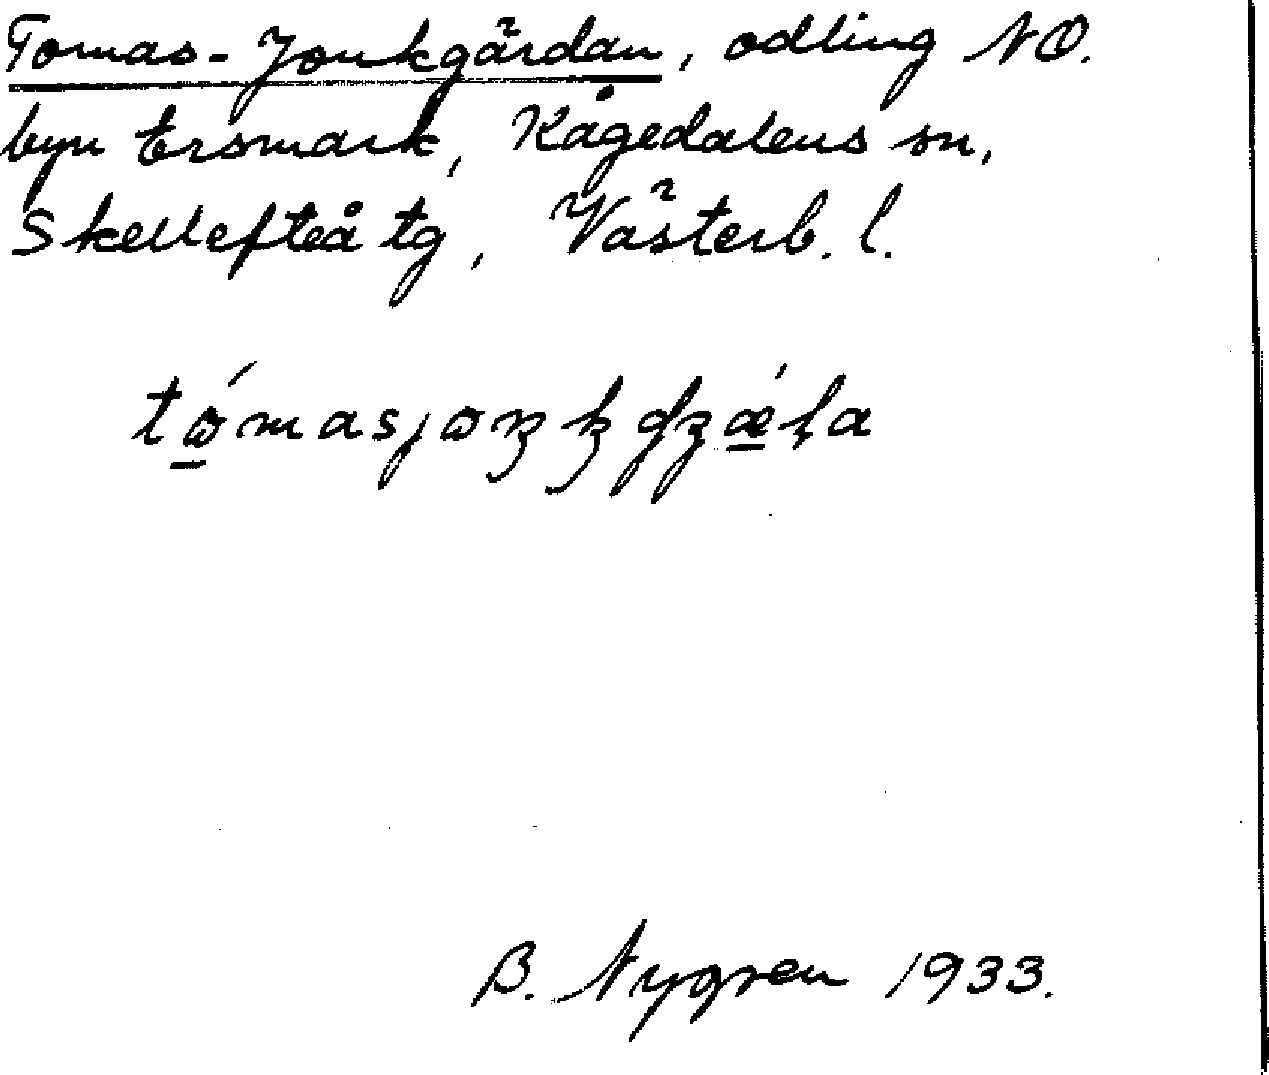 Tomas-Jonkgärdan, odling NO.
byn Ersmark, Kågedalens sn,
Skellefteå tg, Västerb. l.
B. Nygren 1933.